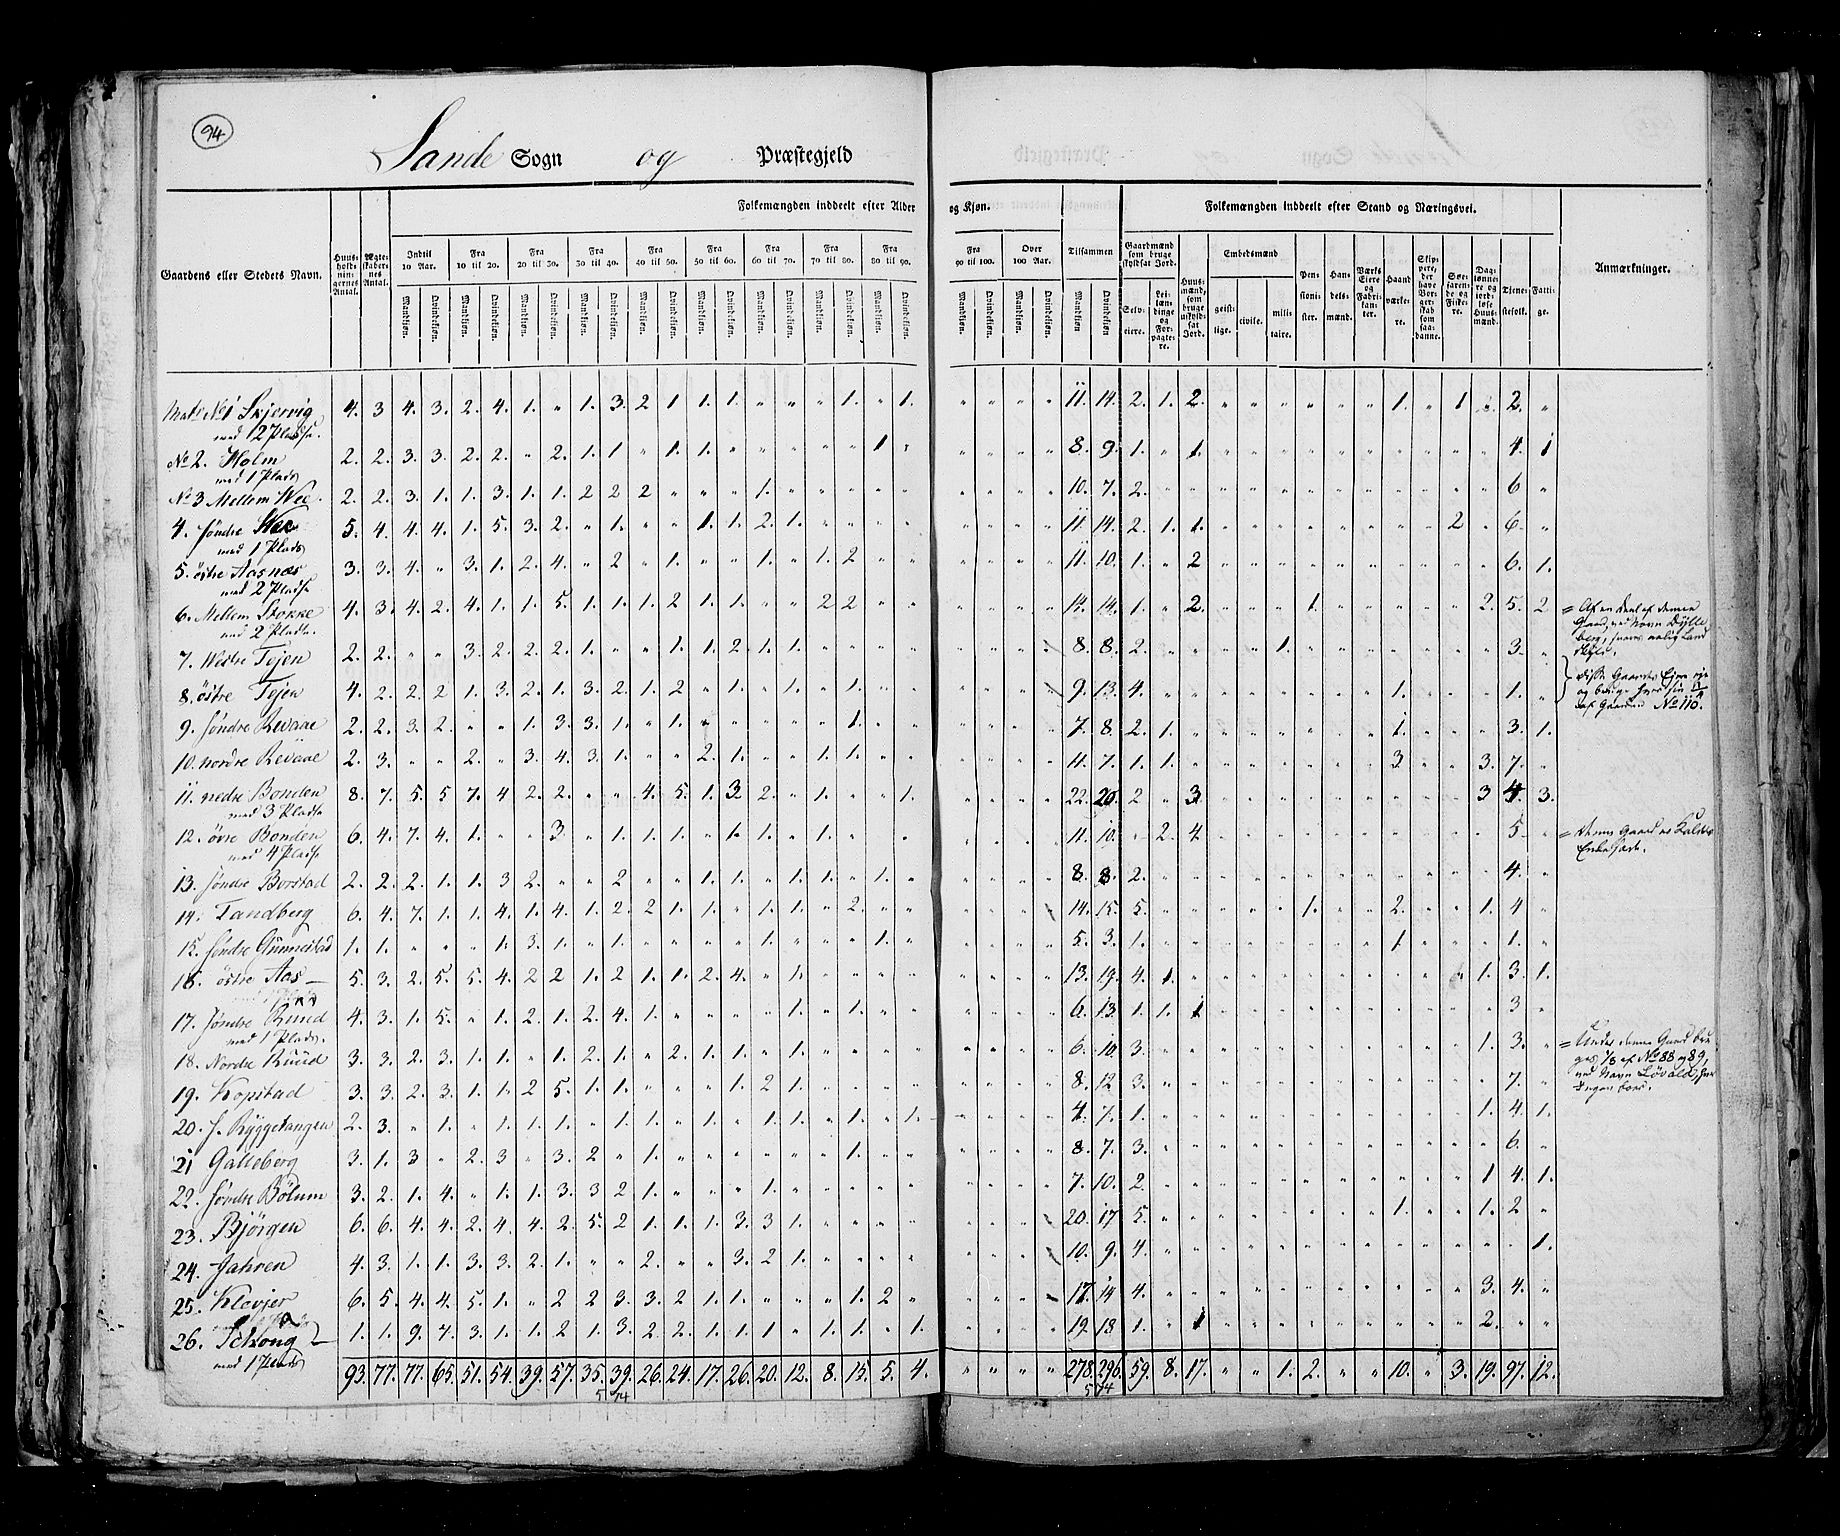 94
Sande Sogn og Præstegjeld
Folkemængden inddeelt efter Alder og Kjøn.
Folkemængden inddeelt efter Stand og Næringsvei.
Gaardens eller Stedets Navn.
Huusholdningernes Antal.
Ægteskabernes Antal.
Indtil 10 Aar.
Fra 10 til 20.
Fra 20 til 30.
Fra 30 til 40.
Fra 40 til 50.
Fra 50 til 60.
Fra 60 til 70.
Fra 70 til 80.
Fra 80 til 90.
Fra 90 til 100.
Over 100 Aar.
Tilsammen
Mandkjøn. Qvindekjøn.
Gaardmænd som bruge skyldsat Jord.
Selveiere.
Leilændinge og Forpagtere.
Huusmænd, som bruge uskyldsat Jord.
Embedsmænd
geistlige. civile. militaire.
Pensionister.
Handelsmænd.
Værks Eiere og Fabrikanter.
Haandværkere.
Søefarende og Fiskere.
Tjenestefolk.
Fattige.
Anmærkninger.
Matr No 1 Skjervig 4. 3 4. 3. 2. 4. 1. " 1. 3. 2 1. 1. 1. " " " 1. " 1. 11. 14. 2. 1. 2. 1. 1 2.
med 2 Pladse.
No 2. Holm 2. 2. 3. 3. 2. 2. " 2. 1. 1 " 1. 1. 8. 9. 1. " 1. 4. 1
med 1 Plads
No 3 Mellem Wee. 2. 2. 3. 1. 1. 3. 1. 1. 2 2 2 " " " 1. 10. 7. 2. 6
4. søndre Wee 5. 4. 4. 4. 1. 5. 3. 2. " 1. " " 1. 1. 2. 1. 11. 14. 2. 1. 1. 2 6.
med 1 Plads
5. østre Aasnæs 3. 3. 4. " 3. 1. 2. 4. " 2 " 1. " " 1. " 1. 2 11. 10. 1. " 2 6. 1.
med 2 Pladse
6. Mellem Stokke 4. 3. 4. 2. 4. 1. 1. 5. 1. 1. 1. 2 1. 1. " " 2 2 14. 14. 1. " 2. 1. 2. 5. 2
med 2 Pladse.
7. Westre Tejen 2. 2. " " 3. 2. 2. 2. 1. " " 1. 1. 2 1. 1. 8. 8. 2. 1. 3.
8. østre Tejen 4. 2. 2. 2 1. 3. 2. 1. 3. 2. 1. 2 " 1. " 1. " 1. 9. 13. 4. 1. 1.
No 110.
9. søndre Revaae 2. 2. 3. 2. " " 1. 3. 3. 1. " 1. 1. 7. 8. 2. 1. 1. 3. 1.
10. nordre Revaae 2. 3. " " 2. " 3. 4. 3. 1. " " 2. 1. " " 1. 1. 11. 7. 1. 1. 3. 3. 7.
11. nedre Bonden 8. 7. 5. 5 7. 4 2. 2. " " 4. 5. 1. 3. 2. " 1. " " 1. 22. 20. 2 " 3 3 4. 3.
med 3 Pladse
12. øvre Bonden 6. 4. 7. 4. 1. " " 3. " 1. 1. 1. " 1. 1. " 1. 11. 10. " 2. 4 5.
med 4 Pladse
13. søndre Borstad 2. 2. 2. 1. 1. 3 2. " " 2 " " 1. 1. " 1. 1. " 1. 8. 8. 2. 4.
14. Tandberg 6. 4. 7. 1. 1. 4. 1. 4. 1. 2. 2 1. 1. " 1. 1. " 2. 14. 15. 5. 1. 2. 1. 4
15. søndre Gunnestad 1. 1. " " " 1. 3. 1. " 1. " " " " 1. " " " 1. 5. 3. 1. 1. 1.
16. østre Aas 5. 3. 2. 5. 5. 4. 2 2 1. 2 1. 1. 2. 4. " 1. 13. 19. 4. 1. 1. 3. 1.
17. søndre Ruud 4. 3. 1. 5. " 1. 2. 1. 2. 4. 1. 1. " 1. 6. 13. 1. 1. 1 3
med 1 Plads.
18. Nordre Ruud 3. 3. 2. 3. 1. 1. " 1. 2. 1. " 2. 1. 1. " 1. 6. 10. 3. 1. 3.
19. Kopstad 3. 3. 2. 3. 1. 1. 2 5. 1. 1. " " " 1. 2 1. 8. 12 3. 7.
20. s. Ryggetangen 2. 3. " 1. " 1. 1. 1. " 1. " 1. 1. 1. " 1. " 1. " 1. 4. 7. 1. 1. 4. 1.
21 Galleberg 3. 1. 3 " 2. 3 " 3. 2 " 1. 1. 8. 7. 3. 6.
22. søndre Bølum 3. 2. 1. 4. " 1. 1. 3. 3 2 1. " " " 1. 7. 10. 2. 1 4. 1.
23. Bjørgen 6. 6. 4. 4. 2. 4. 4. 2. 5. 2 1. 1. 1. 3. 3 1. 20. 17 5. 1. 1. 2
24. Jahren 4. 3. 1. 1. 3. 3. 2. 1. " " 2. " " 3. 2 1. 10. 9. 4. 1.
25. Klevjer 6. 5. 4. 4. 5. 1. " 2 2 3. 3. 2 1. 1. " " " 1. 2 17. 14 4. 3. 4.
26. 1. 1. 9. 7. 3. 1. 1. 2 1. 3. 2. 2. 1. 1. 1 " 1. 1. " 1. 19. 18. 1. " 1 2.
med 1 Plads
93. 77. 77. 65. 51. 54. 39. 57. 35. 39. 26. 24. 17. 26. 20. 12. 8. 15. 5. 4. 278. 296. 59. 8. 17. " " 1. 2. " " 10. " 3. 19. 97. 12.
574
574